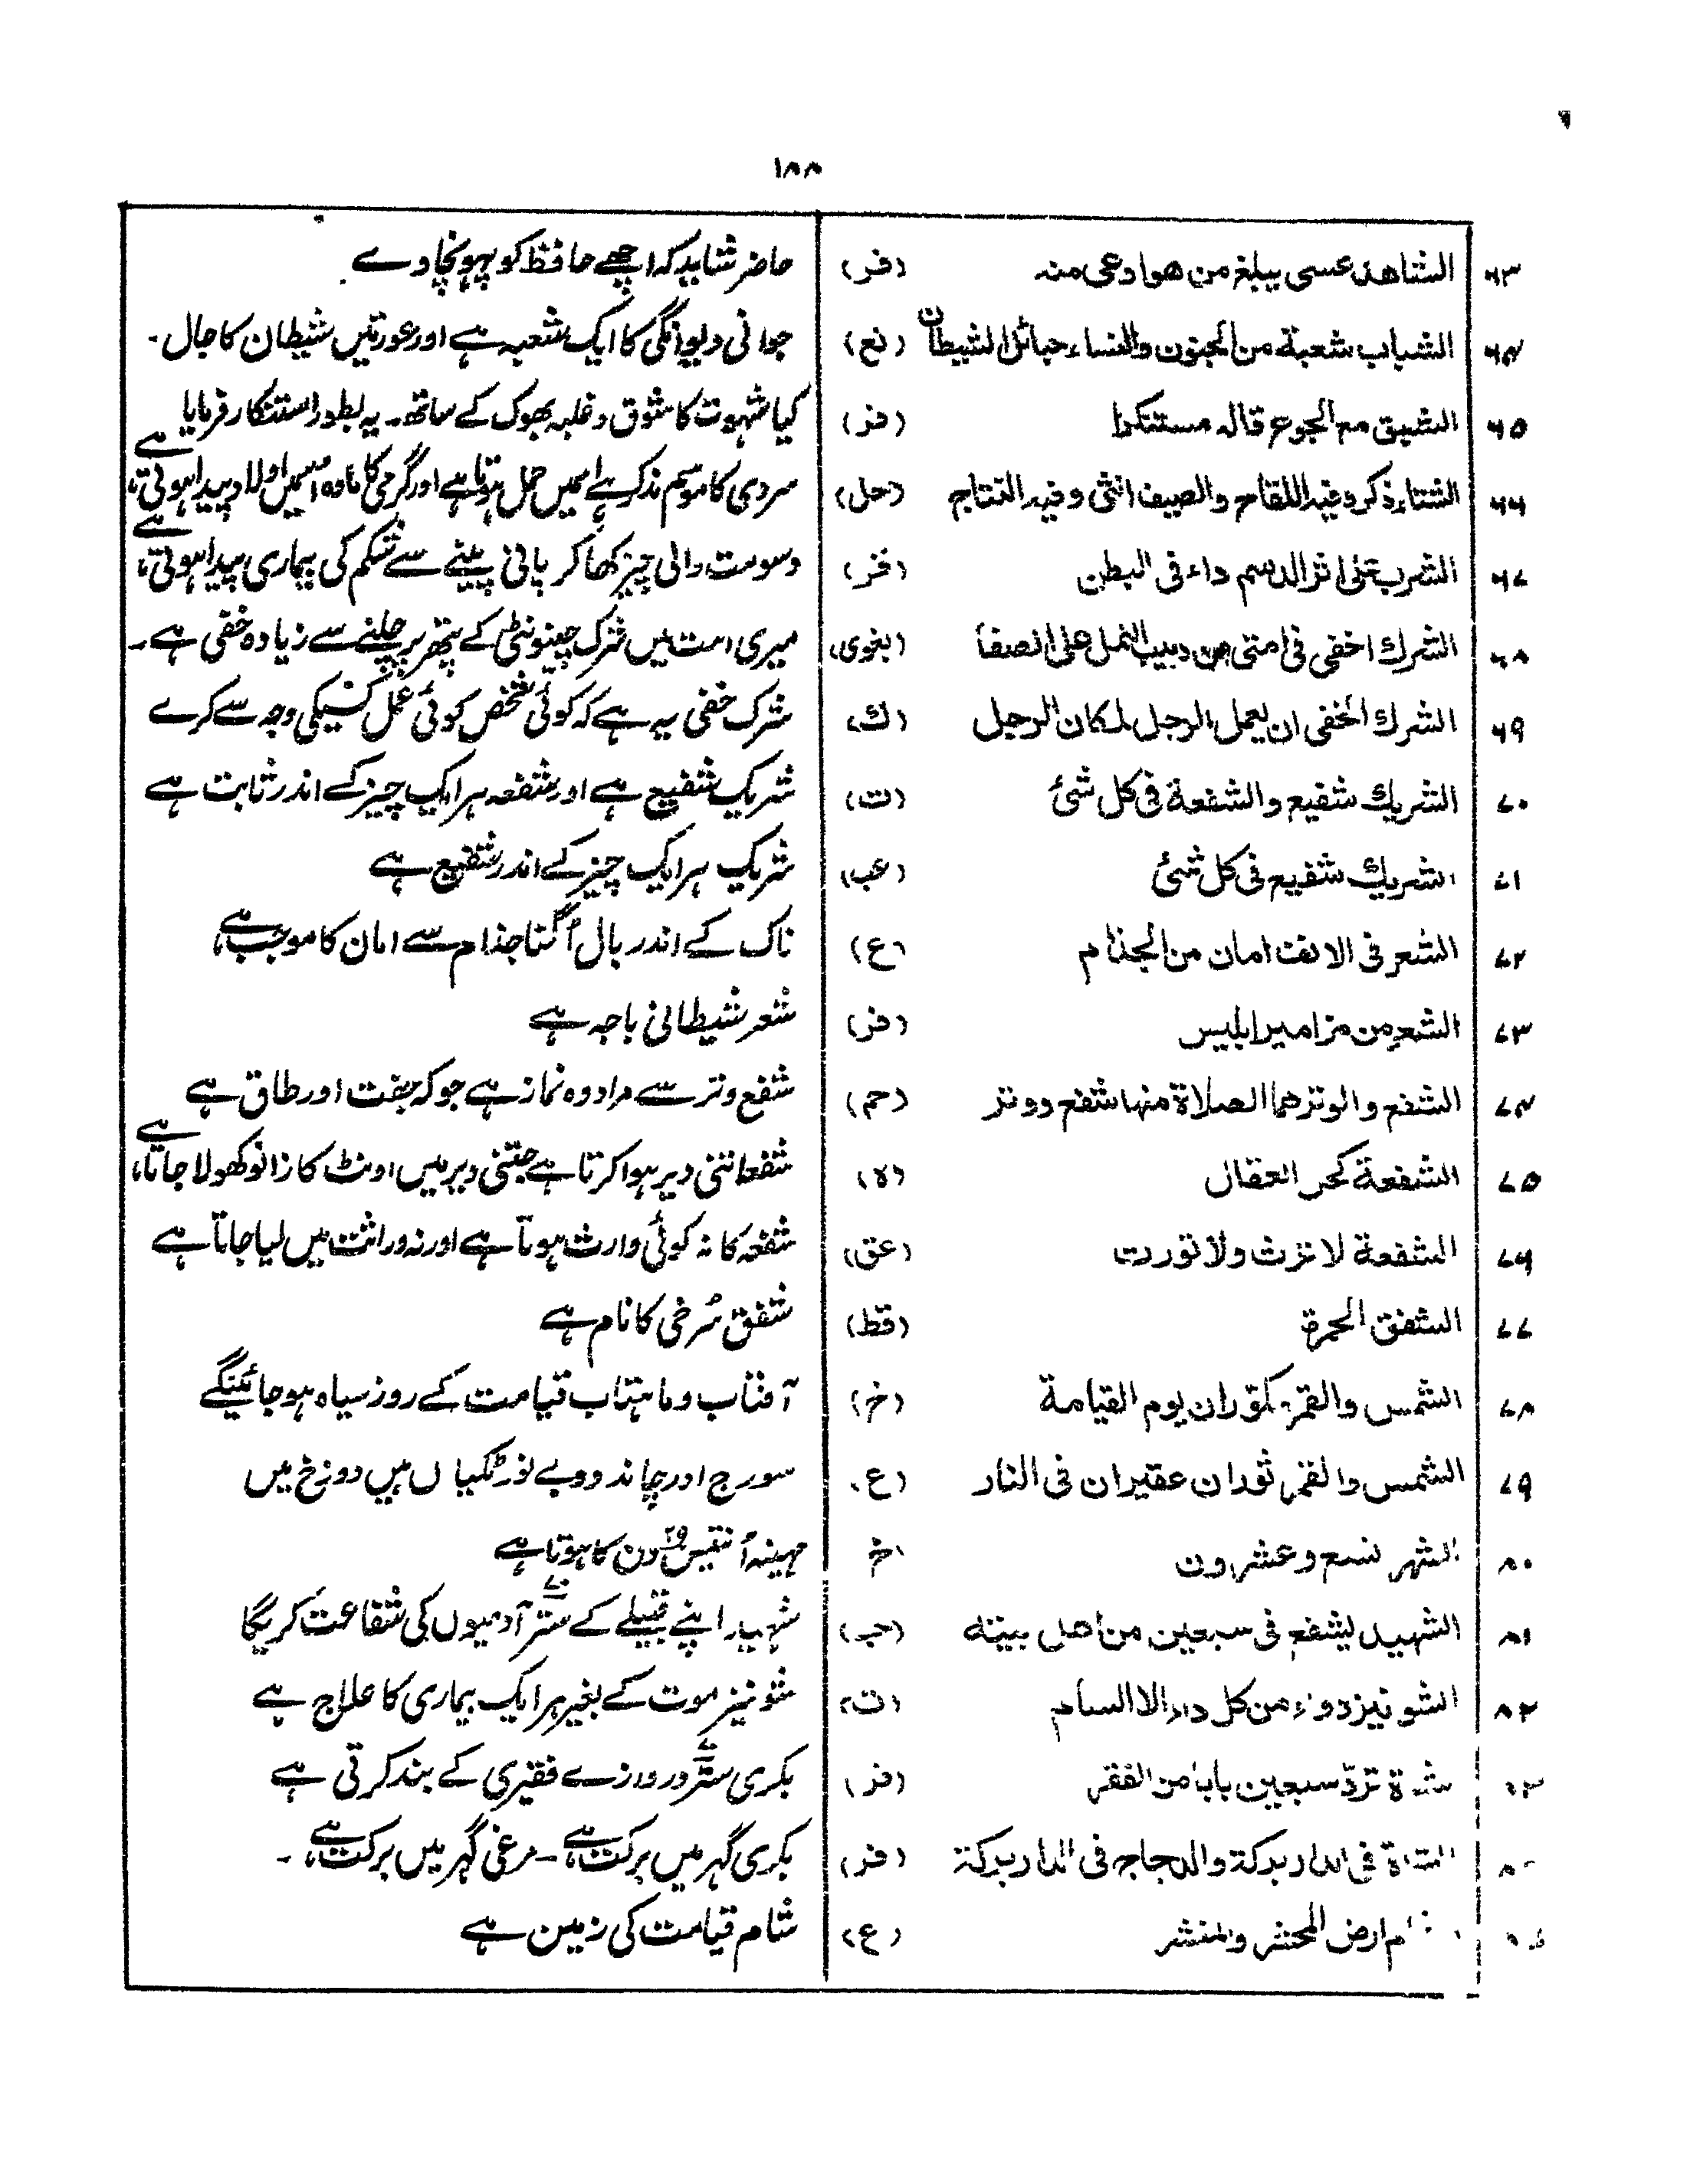 ۱۸۸
۶۳ الشاهد عسى يبلغ من هوادعى منه (فر) حاضر شاید کہ اچھے حافظ کو پہونچاوے
۶۴ الشباب شعبة من الجنون والنساء حبائل الشيطان (نع) جوانی دیوانگی کا ایک شعبہ ہے اور عورتیں شیطان کا جال -
۶۵ الشبق مع الجوع قاله مستنكرا (فر) کیا شہوت کا شوق و غلبہ بھوک کے ساتھ - یہ بطور استنکار فرمایا ہے
۶۶ الشتاء ذكر وفيه اللقاح والصيف انثى وفيه النتاج (حل) سردی کا موسم مذکر ہے اسمیں حمل ہوتا ہے اور گرمی کا مادہ اسمیں اولاد پیدا ہوتی ہے
۶۷ الشرب على اثر الدسم داء فى البطن (فر) دسومت والی چیز کھا کر پانی پینے سے شکم کی بیماری پیدا ہوتی ہے
۶۸ الشرك اخفى فى امتى من دبيب النمل على الصفا (بغوی) میری امت میں شرک چینونٹی کے پتھر پر چلنے سے زیادہ خفی ہے -
۶۹ الشرك الخفى ان يعمل الرجل لمكان الرجل (ك) شرک خفی یہ ہے کہ کوئی شخص کوئی عمل کسیکی وجہ سے کرے
۷۰ الشريك شفيع والشفعة فى كل شئ (ت) شریک شفیع ہے اور شفعہ ہر ایک چیز کے اندر ثابت ہے
۷۱ الشريك شفيع فى كل شئ (عب) شریک ہر ایک چیز کے اندر شفیع ہے
۷۲ الشعر فى الانف امان من الجذام (ع) ناک کے اندر بال اُگنا جذام سے امان کا موجب ہے
۷۳ الشعر من مزامير ابليس (فر) شعر شیطانی باجہ ہے
۷۴ الشفع والوتر هما الصلاة منها شفع ووتر (حم) شفع وتر سے مراد وہ نماز ہے جو کہ جفت اور طاق ہے
۷۵ الشفعة كحل العقال (ه) شفعا اتنی دیر ہوا کرتا ہے جتنی دیر میں اونٹ کا زانو کھولا جاتا ہے
۷۶ الشفعة لا ترث ولا تورث (عق) شفعہ کا نہ کوئی وارث ہوتا ہے اور نہ وراثت میں لیا جاتا ہے
۷۷ الشفق الحمرة (قط) شفق سُرخی کا نام ہے
۷۸ الشمس والقمر مكوّران يوم القيامة (خ) آفتاب و ماہتاب قیامت کے روز سیاہ ہو جائینگے
۷۹ الشمس والقمر ثوران عقيران فى النار (ع) سورج اور چاند دو بے نور ٹکیاں ہیں دوزخ میں
۸۰ الشهر تسع وعشرون خ مہینہ اُنتیس ۲۹ دن کا ہوتا ہے
۸۱ الشهيد يشفع فى سبعين من اهل بيته (حب) شہید اپنے قبیلے کے ستر ۷۰ آدمیوں کی شفاعت کریگا
۸۲ الشونيز دواء من كل داء الا السام (ت) شونیز موت کے بغیر ہر ایک بیماری کا علاج ہے
تردّ سبعين بابا من الفقر (فر) بکری ستر ۷۰ دروازے فقیری کے بند کرتی ہے
الشاة فى الدار بركة والدجاجه فى الدار بركة (فر) بکری گہر میں برکت ہے - مرغی گہر میں برکت ہے -
ارض المحشر والمنشر (ع) شام قیامت کی زمین ہے